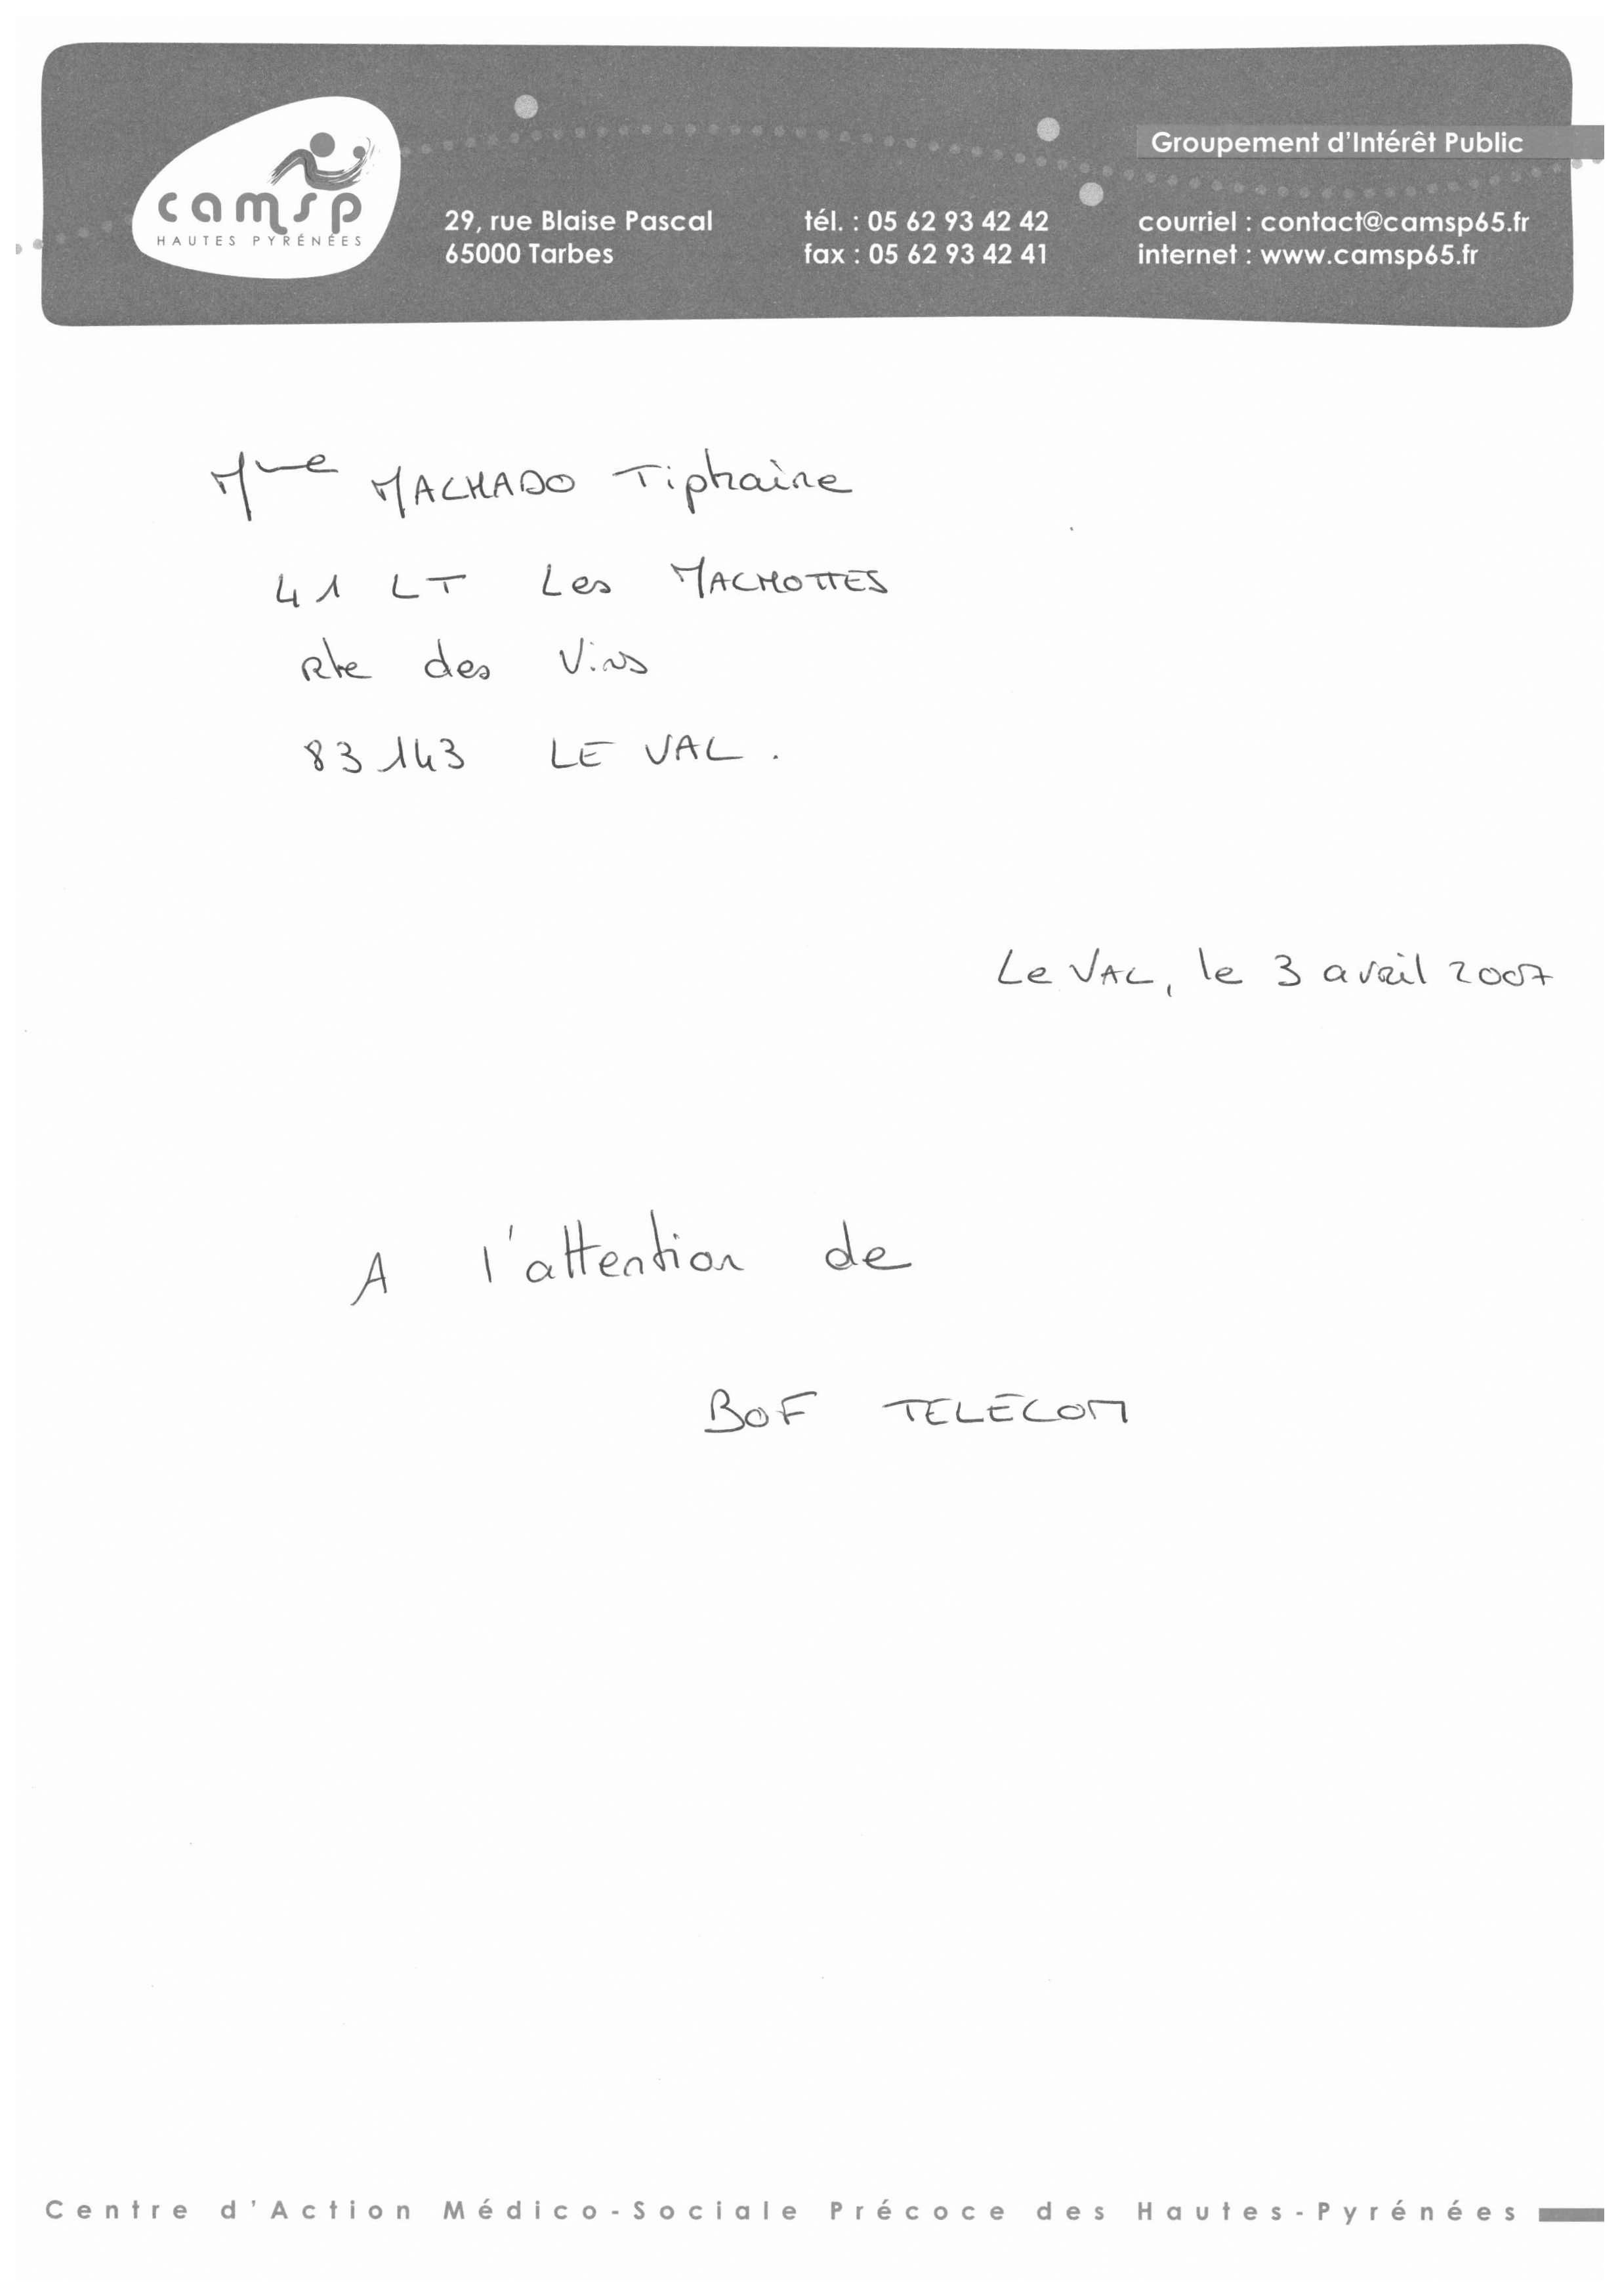 Groupement d'Intérêt Public
camsp
HAUTES PYRÉNÉES
29, rue Blaise Pascal
65000 Tarbes
tél. : 05 62 93 42 42
fax : 05 62 93 42 41
courriel : contact@camsp65.fr
internet : www.camsp65.fr
Mme MACHADO Tiphaine
41 LT Les MACHOTTES
Rte des Vins
83143 LE VAL.
Le VAL, le 3 avril 2007
A l'attention de
BOF TELECOM
Centre d'Action Médico-Sociale Précoce des Hautes-Pyrénées